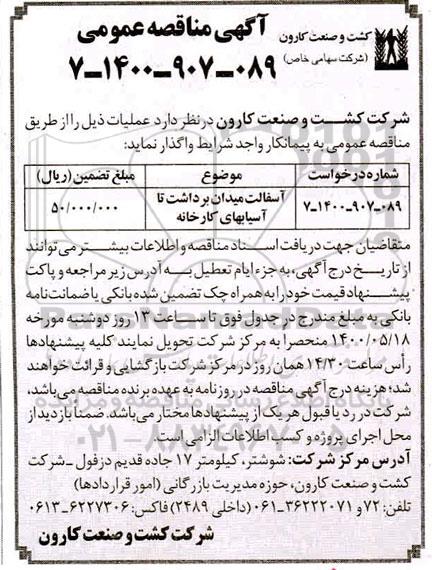 کشت و صنعت کارون
(شرکت سهامی خاص)
آگهی مناقصه عمومی
۷-۱۴۰۰-۹۰۷-۰۸۹
شرکت کشت و صنعت کارون در نظر دارد عملیات ذیل را از طریق
مناقصه عمومی به پیمانکار واجد شرایط واگذار نماید:
شماره درخواست موضوع مبلغ تضمین (ریال)
۷-۱۴۰۰-۹۰۷-۰۸۹ آسفالت میدان برداشت تا آسیابهای کارخانه ۵۰/۰۰۰/۰۰۰
متقاضیان جهت دریافت اسناد مناقصه و اطلاعات بیشتر می‌توانند
از تاریخ درج آگهی، به جزء ایام تعطیل به آدرس زیر مراجعه و پاکت
پیشنهاد قیمت خود را به همراه چک تضمین شده بانکی یا ضمانت‌نامه
بانکی به مبلغ مندرج در جدول فوق تا ساعت ۱۳ روز دوشنبه مورخه
۱۴۰۰/۰۵/۱۸ منحصرا به مرکز شرکت تحویل نمایند کلیه پیشنهادها
رأس ساعت ۱۴/۳۰ همان روز در مرکز شرکت بازگشایی و قرائت خواهند
شد؛ هزینه درج آگهی مناقصه در روزنامه به عهده برنده مناقصه می‌باشد،
شرکت در رد یا قبول هر یک از پیشنهادها مختار می‌باشد. ضمناً بازدید از
محل اجرای پروژه و کسب اطلاعات الزامی است.
آدرس مرکز شرکت: شوشتر، کیلومتر ۱۷ جاده قدیم دزفول -شرکت
کشت و صنعت کارون، حوزه مدیریت بازرگانی (امور قراردادها)
تلفن: ۷۲ و ۳۶۲۲۲۰۷۱-۰۶۱ (داخلی ۲۴۸۹) فاکس: ۶۲۲۷۳۰۶-۰۶۱۳
شرکت کشت و صنعت کارون